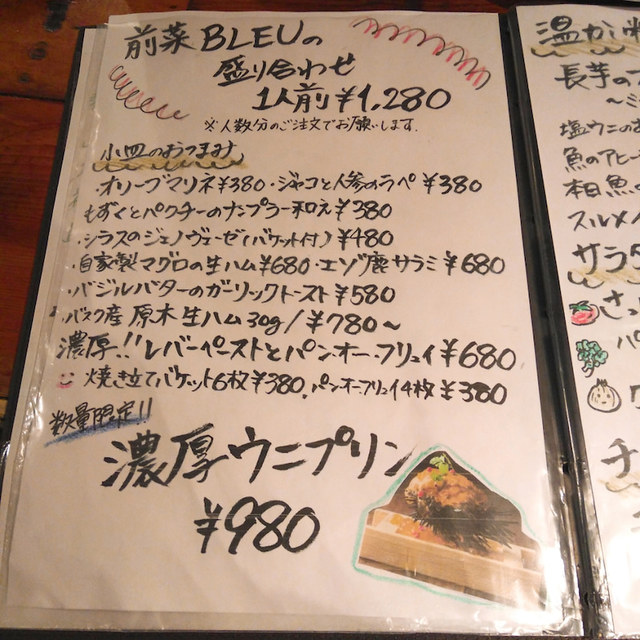 前菜BLEUの
盛り合わせ
1人前¥1,280
※人数分のご注文でお願いします.
小皿のおつまみ
・オリーブマリネ¥380・ジャコと人参のラペ¥380
・もずくとパクチーのナンプラー和え¥380
・シラスのジェノヴェーゼ(バケット付)¥480
・自家製マグロの生ハム¥680・エゾ鹿サラミ¥680
・バジルバターのガーリックトースト¥580
・バスク産 原木生ハム30g/¥780~
濃厚!!レバーペーストとパンオー・フリュイ¥680
焼き立てバケット6枚¥380,パンオーフリュイ4枚¥380
数量限定!!
濃厚ウニプリン
¥980
温かい
長芋の
塩ウニの
魚のアヒー
本日魚
スルメ
サラダ
チ